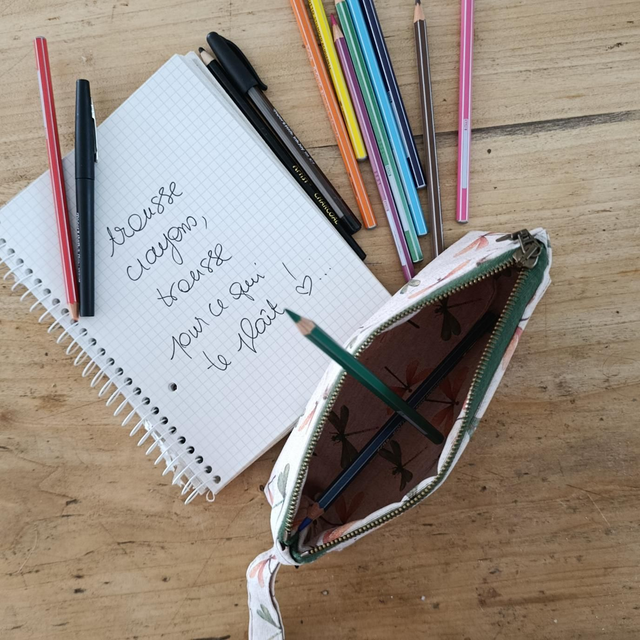 trousse
crayons,
trousse
pour ce qui
te plaît ! ♡...